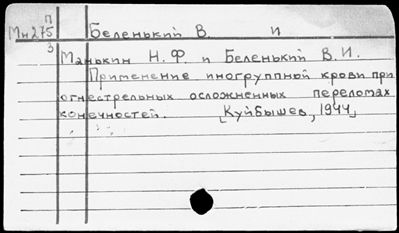 П
Мн275 Беленький В. И
3
Манькин Н. Ф. и Беленький В. И.
Применение иногруппной крови при
огнестрельных осложненных переломах
конечностей. [Куйбышев, 1944]